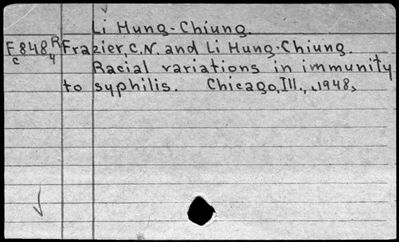 Li Hung-Chiung.
F848R Frazier, C.N. and Li Hung-Chiung.
c 4 Racial variations in immunity
to syphilis. Chicago, Ill., 1948,